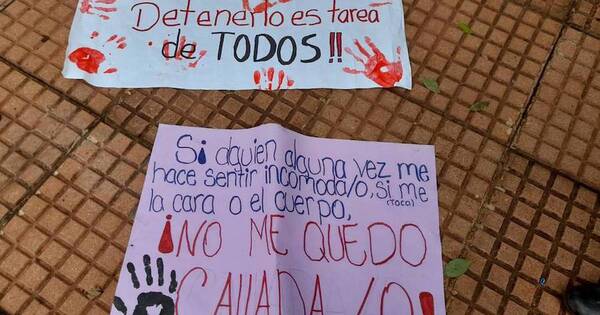 Detenerlo es tarea
de TODOS!!
Si alguien alguna vez me
hace sentir incomoda/o, si me
(toca)
la cara o el cuerpo,
¡NO ME QUEDO
CALLADA/O!